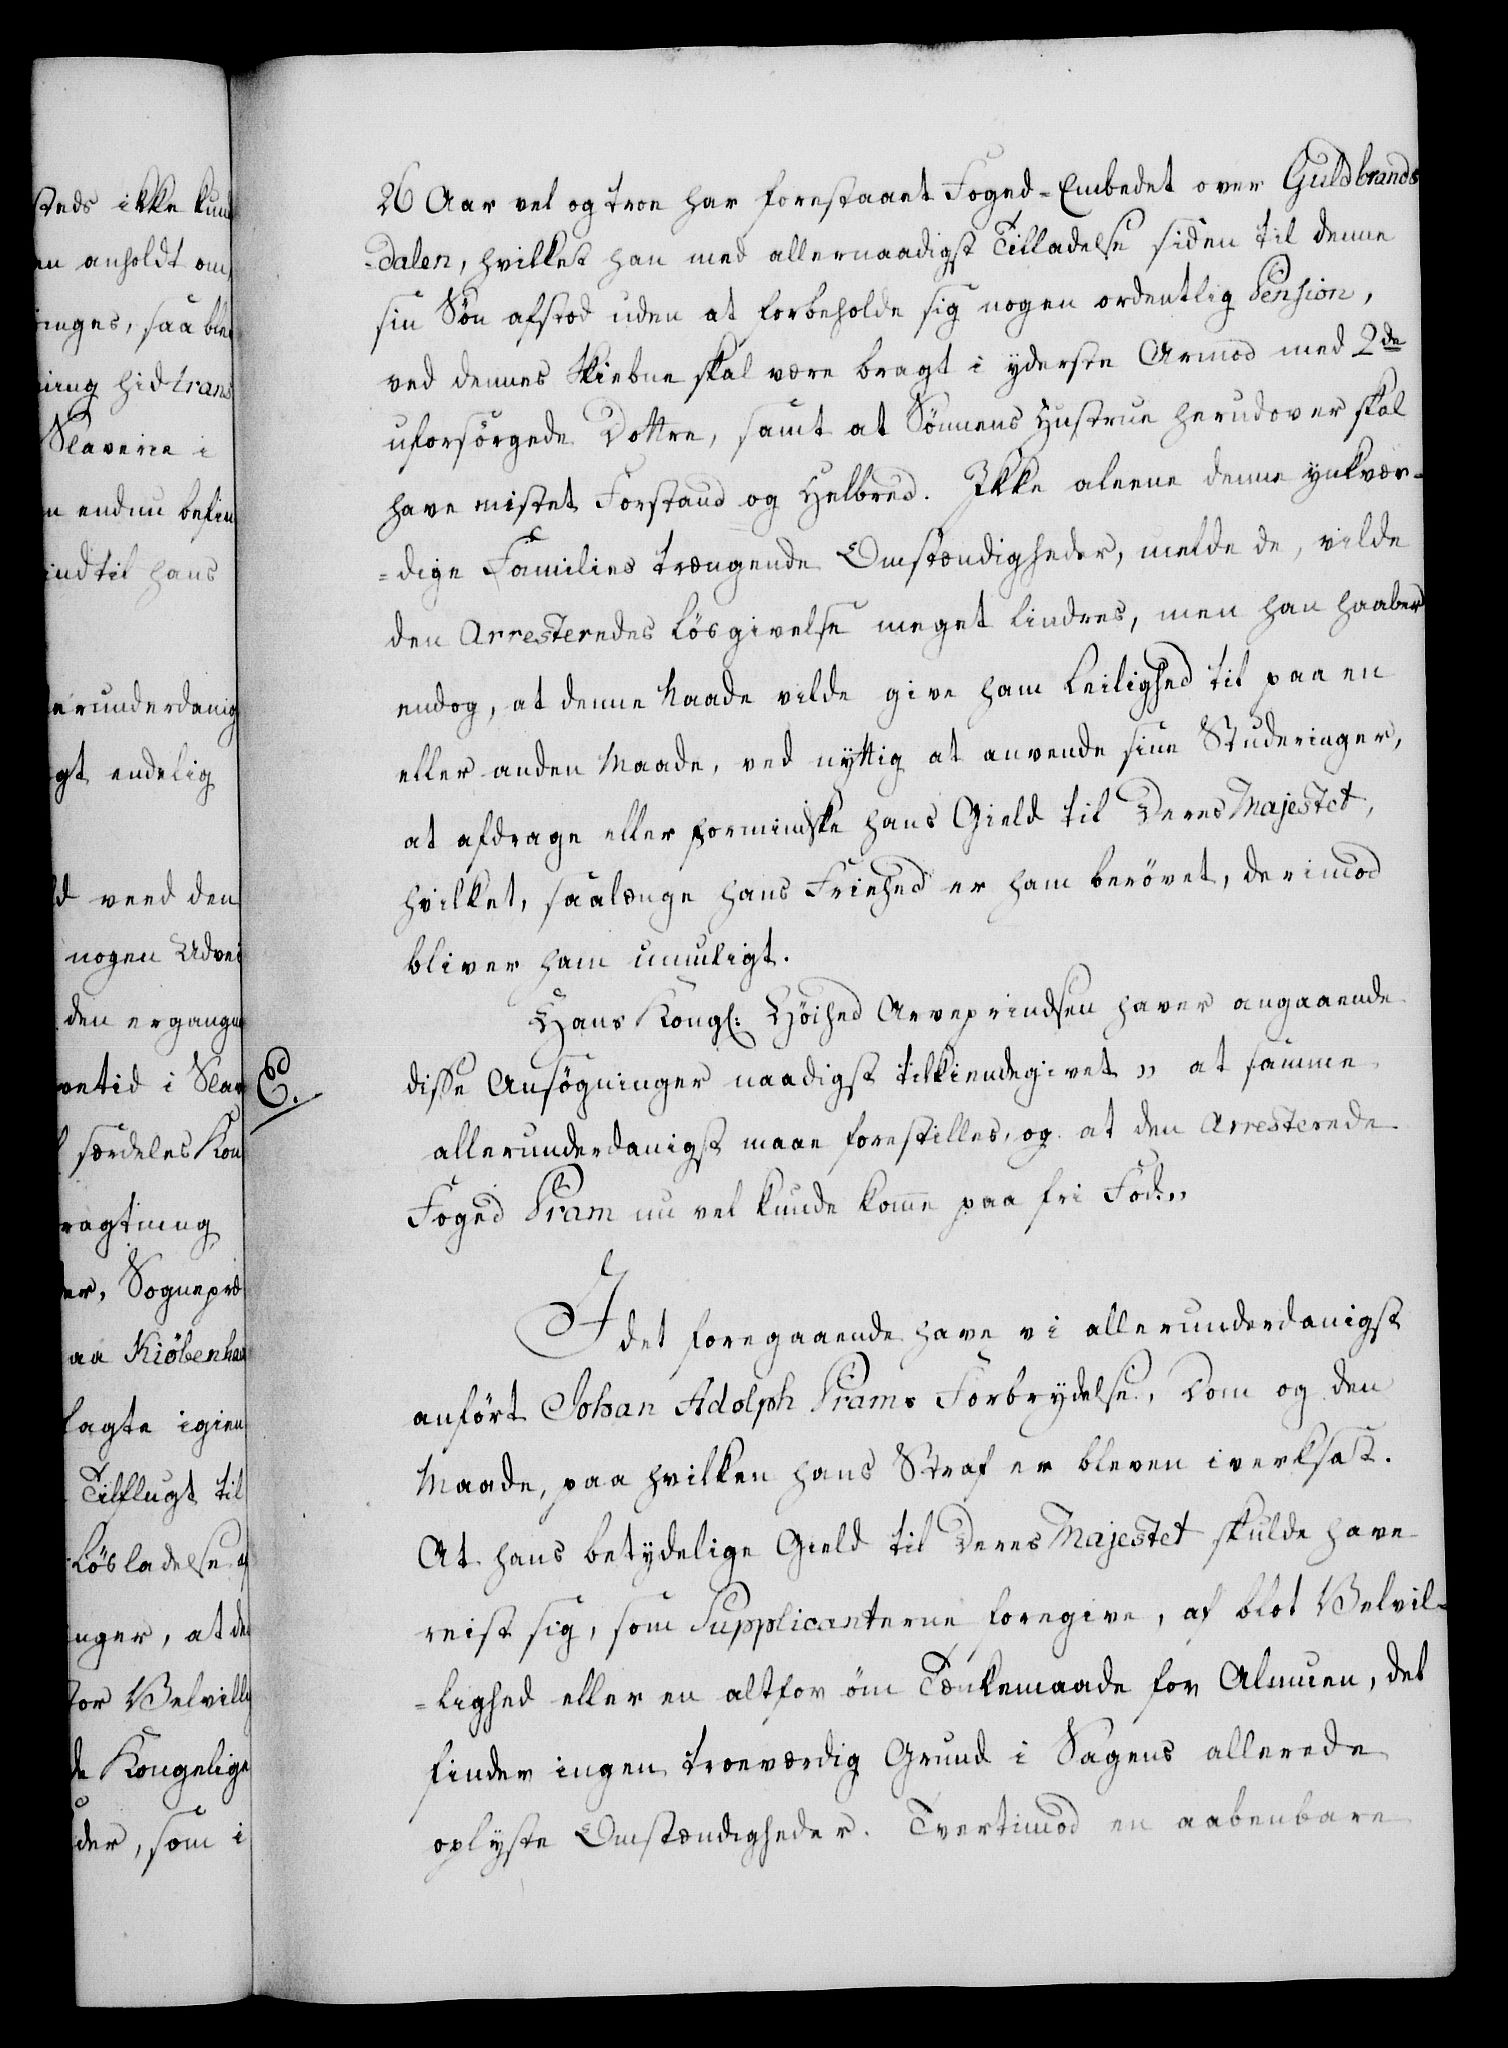 steds ikke kund
en anholdt om
inges, saa blev
ning hid trans
Slaverie i
n endnu befin
indtil hans
erunderdanig
gt endelig
d veed den
nogen Udvei
den ergangne
vetid i Slav
særdeles Kon
ragtning
er, Sognepræ
aa Kiöbenhav
lagte igien
Tilflugt til
Lösladelse
nger, at de
for Velvilli
de Kongelige
der, som i
26 Aar vel og troe har forestaaet Foged-Embedet over Guldbrands
-dalen, hvilket han med allernaadigst Tilladelse siden til denne
sin Sön afstod uden at forbeholde sig nogen ordentlig Pension,
ved dennes Skiebne skal være bragt i yderste Armod med 2de
uforsörgede Döttre, samt at Sönnens Hustrue herudover skal
have mistet Forstand og Helbred. Ikke aleene denne ynkvær-
=dige Families trængende Omstændigheder, melde de, vilde
den Arresteredes Lösgivelse meget lindres, men han haaber
endog, at denne Naade vilde give ham Leilighed til paa en
eller anden Maade, ved nyttig at anvende sine Studeringer,
at afdrage eller formindske hans Gield til Deres Majestet,
hvilket, saalænge hans Friehed er ham berövet, derimod
bliver ham umuligt.
Hans Kongl: Höihed Arveprindsen haver angaaende
C.
disse Ansögninger naadigst tilkiendegivet „ at samme
allerunderdanigst maae forestilles, og at den Arresterede
Foged Pram nu vel kunde komme paa fri Fod.„
I det foregaaende have vi allerunderdanigst
anfört Johan Adolph Prams Forbrydelse, Dom og den
Maade, paa hvilken hans Straf er bleven iverksat.
At hans betydelige Gield til Deres Majestet skulde have
reist sig, som Supplicanterne foregive, af blot Velvil-
=lighed eller en altfor öm Tænkemaade for Almuen, det
finder ingen troeværdig Grund i Sagens allerede
oplyste Omstændigheder. Tvertimod en aabenbare